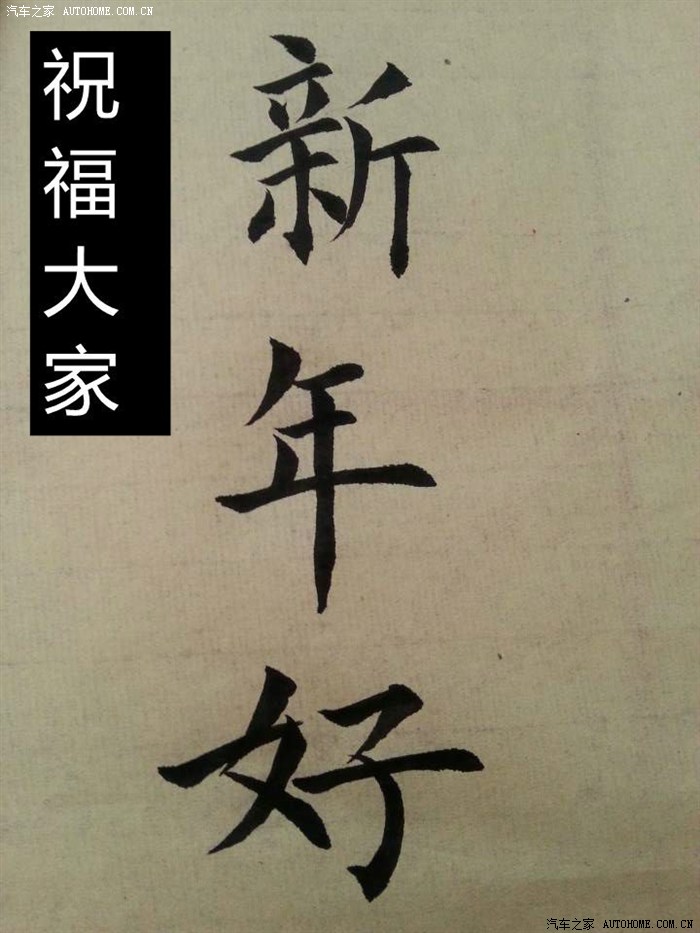 汽车之家 AUTOHOME.COM.CN
祝福大家
新年好
汽车之家 AUTOHOME.COM.CN